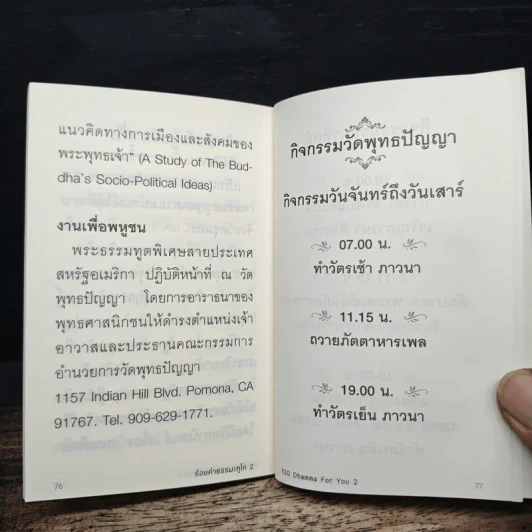 แนวคิดทางการเมืองและสังคมของ
พระพุทธเจ้า" (A Study of The Bud-
dha's Socio-Political Ideas)
งานเพื่อพหูชน
พระธรรมทูตพิเศษสายประเทศ
สหรัฐอเมริกา ปฏิบัติหน้าที่ ณ วัด
พุทธปัญญา โดยการอาราธนาของ
พุทธศาสนิกชนให้ดำรงตำแหน่งเจ้า
อาวาสและประธานคณะกรรมการ
อำนวยการวัดพุทธปัญญา
1157 Indian Hill Blvd. Pomona, CA
91767. Tel. 909-629-1771.
76
ร้อยคำธรรมะทูโก 2
กิจกรรมวัดพุทธปัญญา
กิจกรรมวันจันทร์ถึงวันเสาร์
07.00 น.
ทำวัตรเช้า ภาวนา
11.15 น.
ถวายภัตตาหารเพล
19.00 น.
ทำวัตรเย็น ภาวนา
100 Dhamma For You 2
77